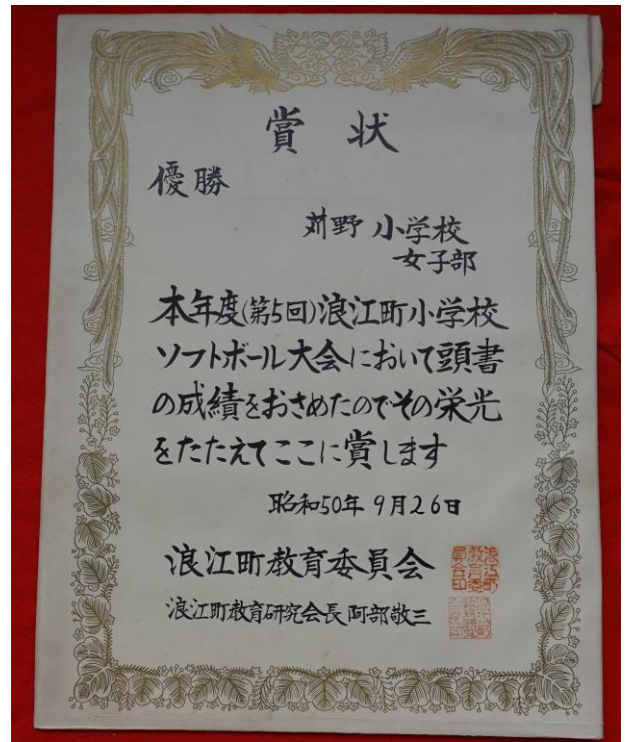 賞状
優勝
苅野小学校
女子部
本年度(第5回)浪江町小学校
ソフトボール大会において頭書
の成績をおさめたのでその栄光
をたたえてここに賞します
昭和50年9月26日
浪江町教育委員会
浪江町教育研究会長 阿部敬三
浪江町
教育委
員会印